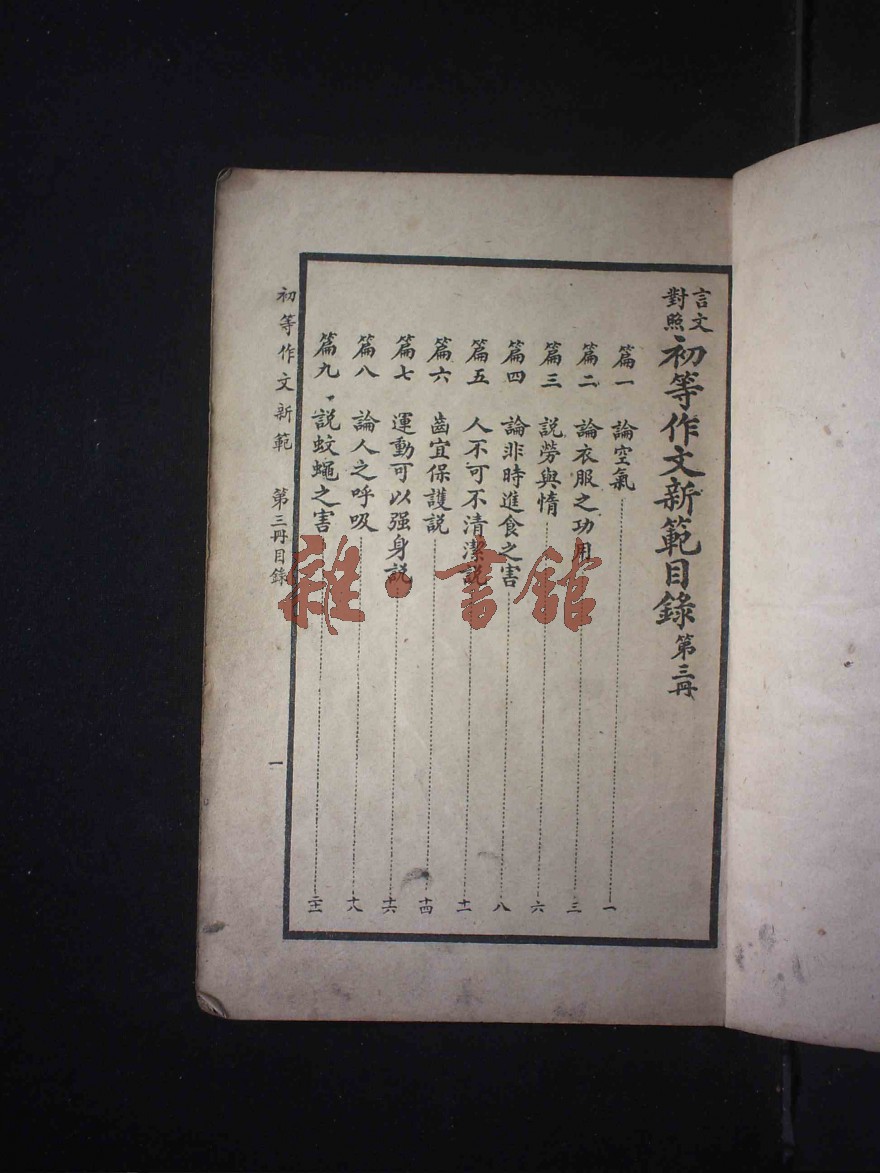 言文對照初等作文新範目錄 第三冊
篇一 論空氣 一
篇二 論衣服之功用 三
篇三 說勞與惰 六
篇四 論非時進食之害 八
篇五 人不可不清潔説 十一
篇六 齒宜保護説 十四
篇七 運動可以强身説 十六
篇八 論人之呼吸 十八
篇九 説蚊蠅之害 二十一
初等作文新範 第三冊目錄 一
雜·書館